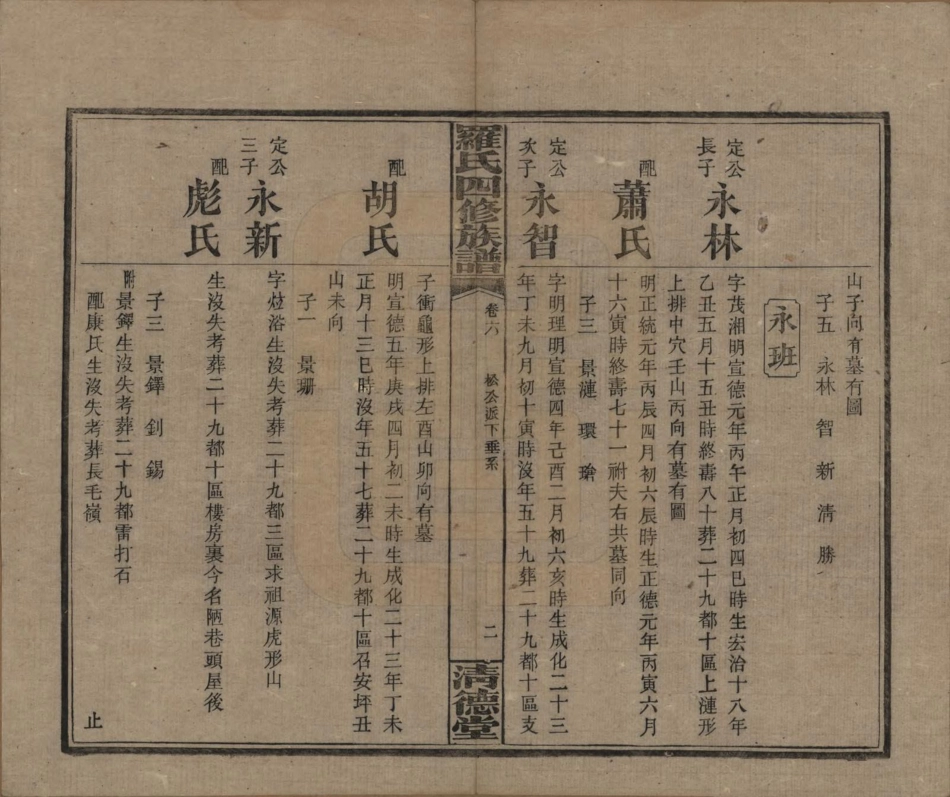 山子向有墓有圖
子五　永林　智　新　清　勝
永班
定公長子
永林
字茂湘明宣德元年丙午正月初四巳時生宏治十八年
乙丑五月十五丑時終壽八十葬二十九都十區上漣形
上排中穴壬山丙向有墓有圖
配
蕭氏
明正統元年丙辰四月初六辰時生正德元年丙寅六月
十六寅時終壽七十一祔夫右共墓同向
子三　景漣　環　瑜
定公次子
永智
字明理明宣德四年己酉二月初六亥時生成化二十三
年丁未九月初十寅時沒年五十九葬二十九都十區支
羅氏四修族譜
卷六
松公派下垂系
二
清德堂
子衝龜形上排左酉山卯向有墓
配
胡氏
明宣德五年庚戌四月初二未時生成化二十三年丁未
正月十三巳時沒年五十七葬二十九都十區召安坪丑
山未向
子一　景珊
定公三子
永新
字焢浴生沒失考葬二十九都三區求祖源虎形山
配
彪氏
生沒失考葬二十九都十區樓房裏今名陋巷頭屋後
子三　景鐸　釗　錫
附景鐸生沒失考葬二十九都雷打石
配康氏生沒失考葬長毛嶺
止